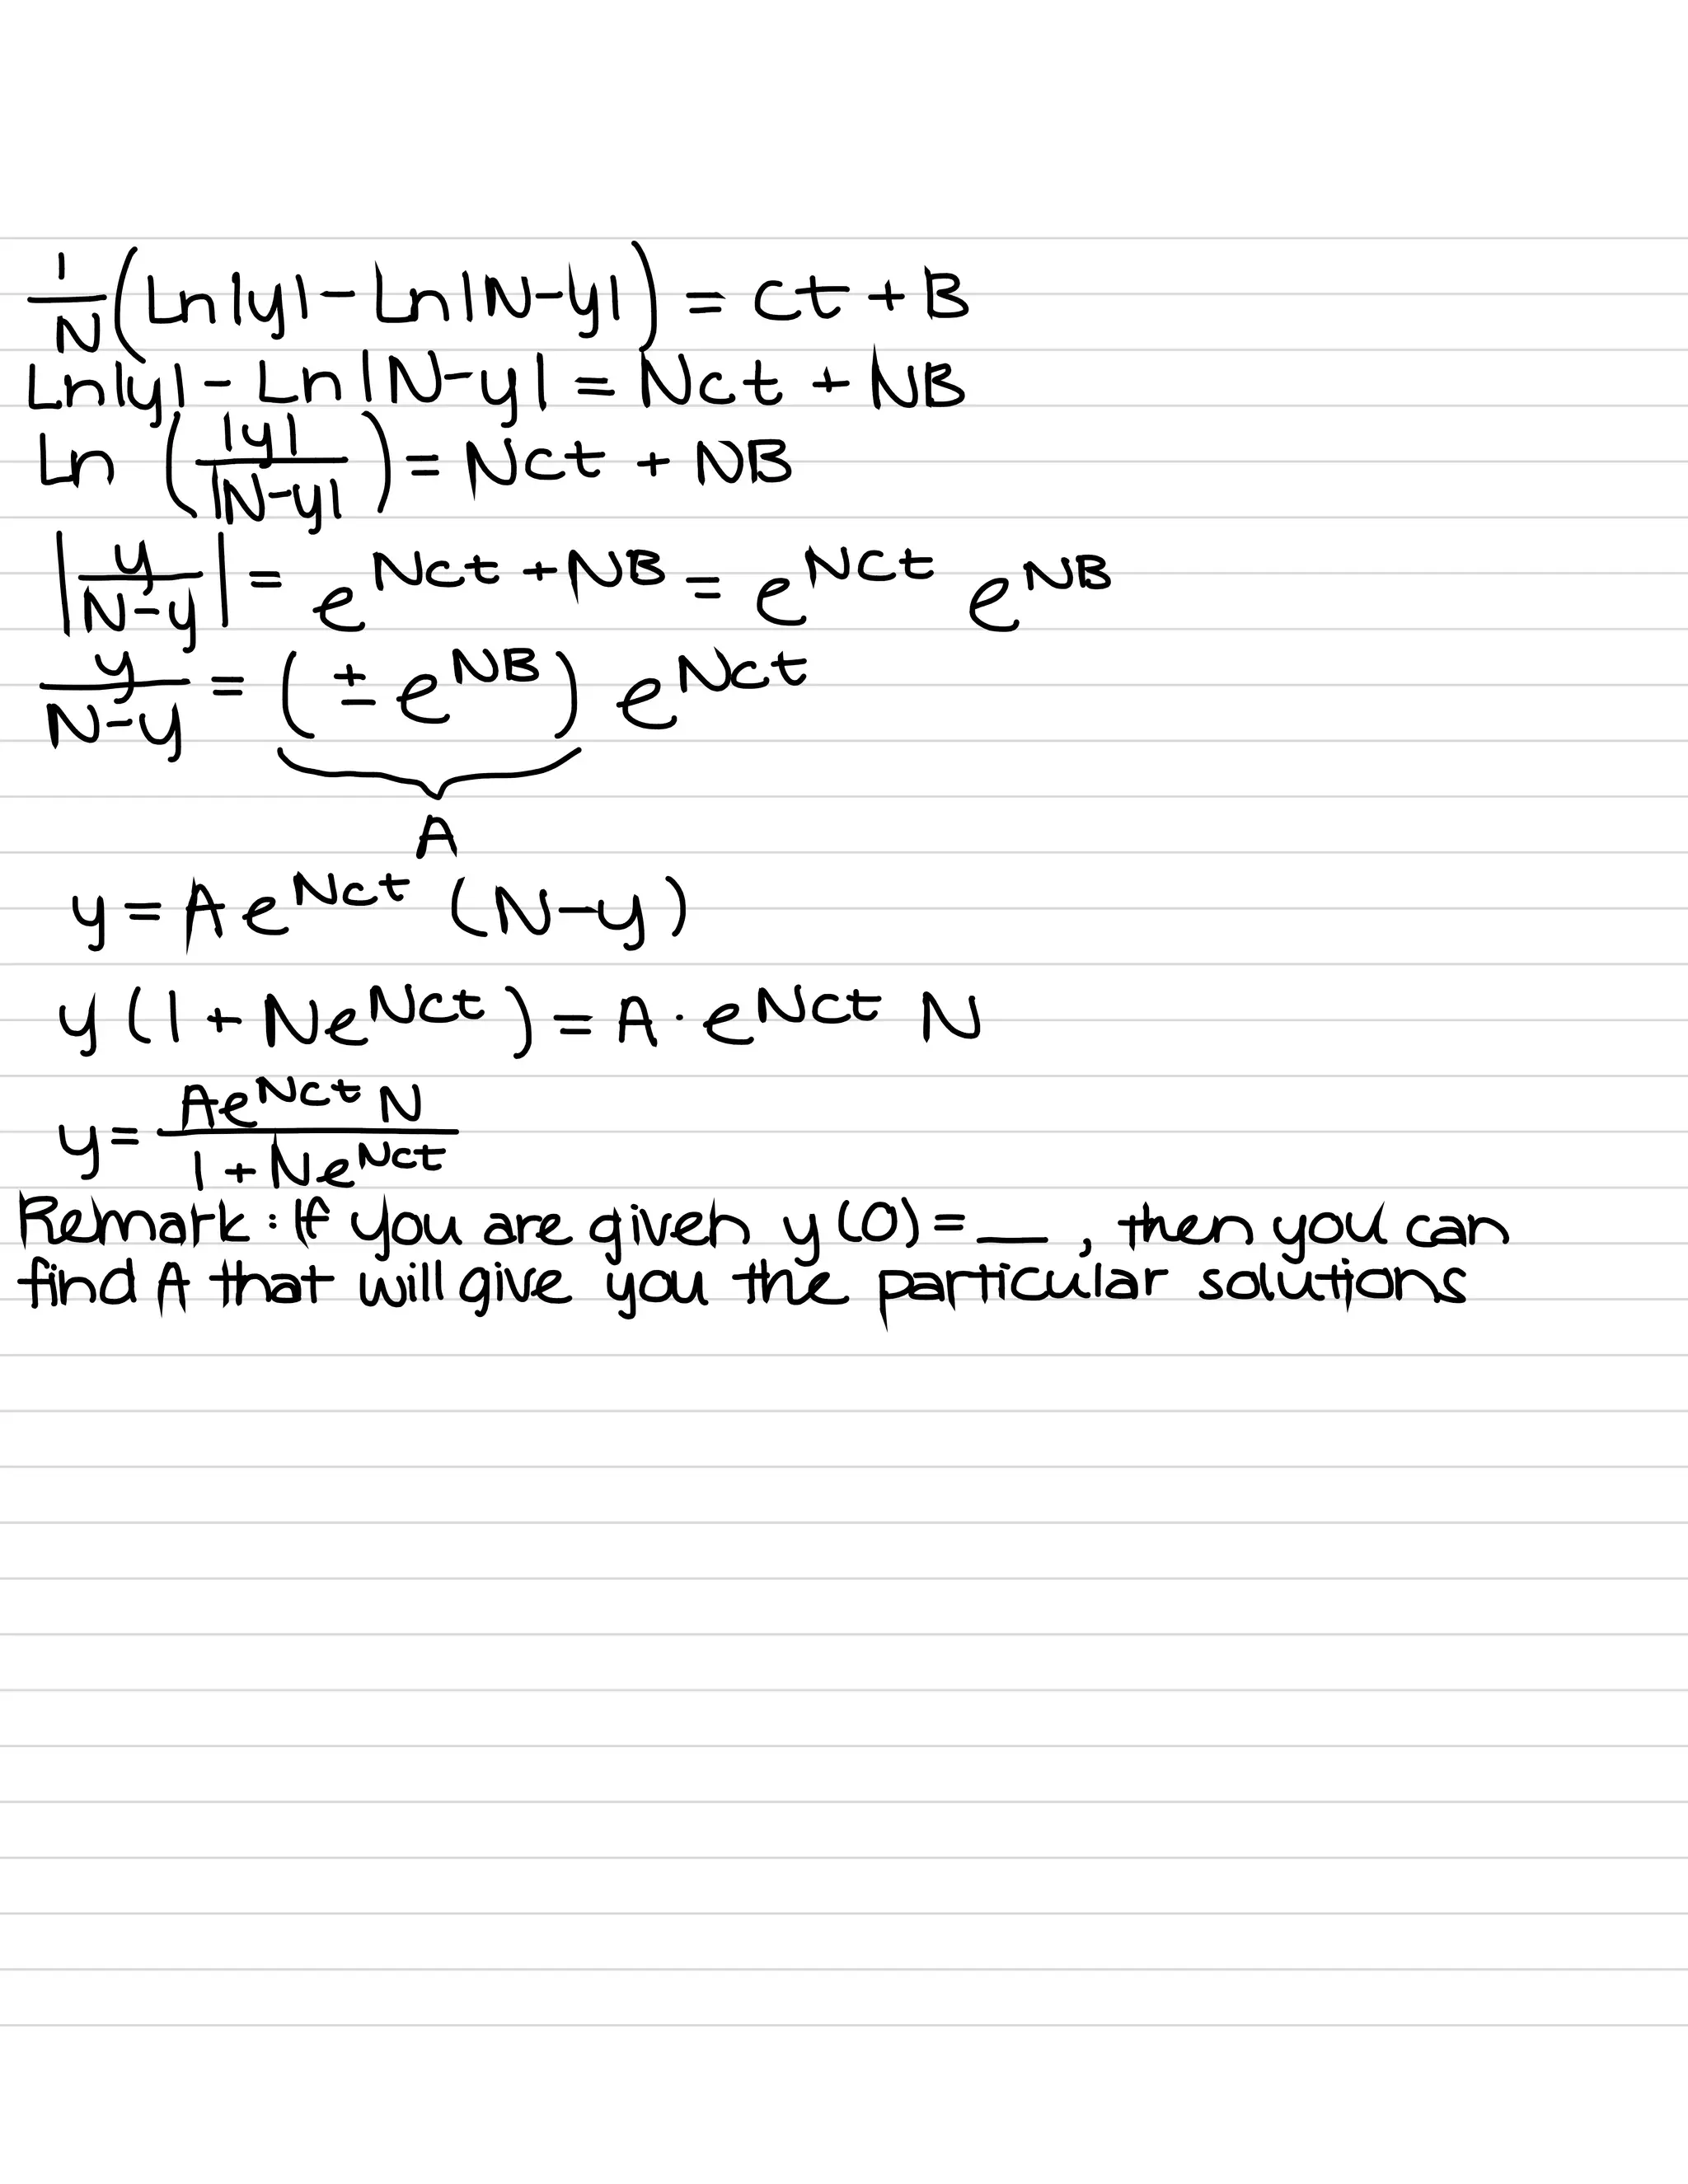 1/N (Ln|y| - Ln|N-y|) = ct + B
Ln|y| - Ln|N-y| = Nct + NB
Ln (|y|/|N-y|) = Nct + NB
|y/(N-y)| = e^(Nct + NB) = e^(Nct) e^(NB)
y/(N-y) = (± e^(NB)) e^(Nct)
A
y = A e^(Nct) (N-y)
y (1 + Ne^(Nct)) = A · e^(Nct) N
y = (Ae^(Nct) N)/(1 + Ne^(Nct))
Remark: If you are given y(0) = __ , then you can
find A that will give you the particular solutions